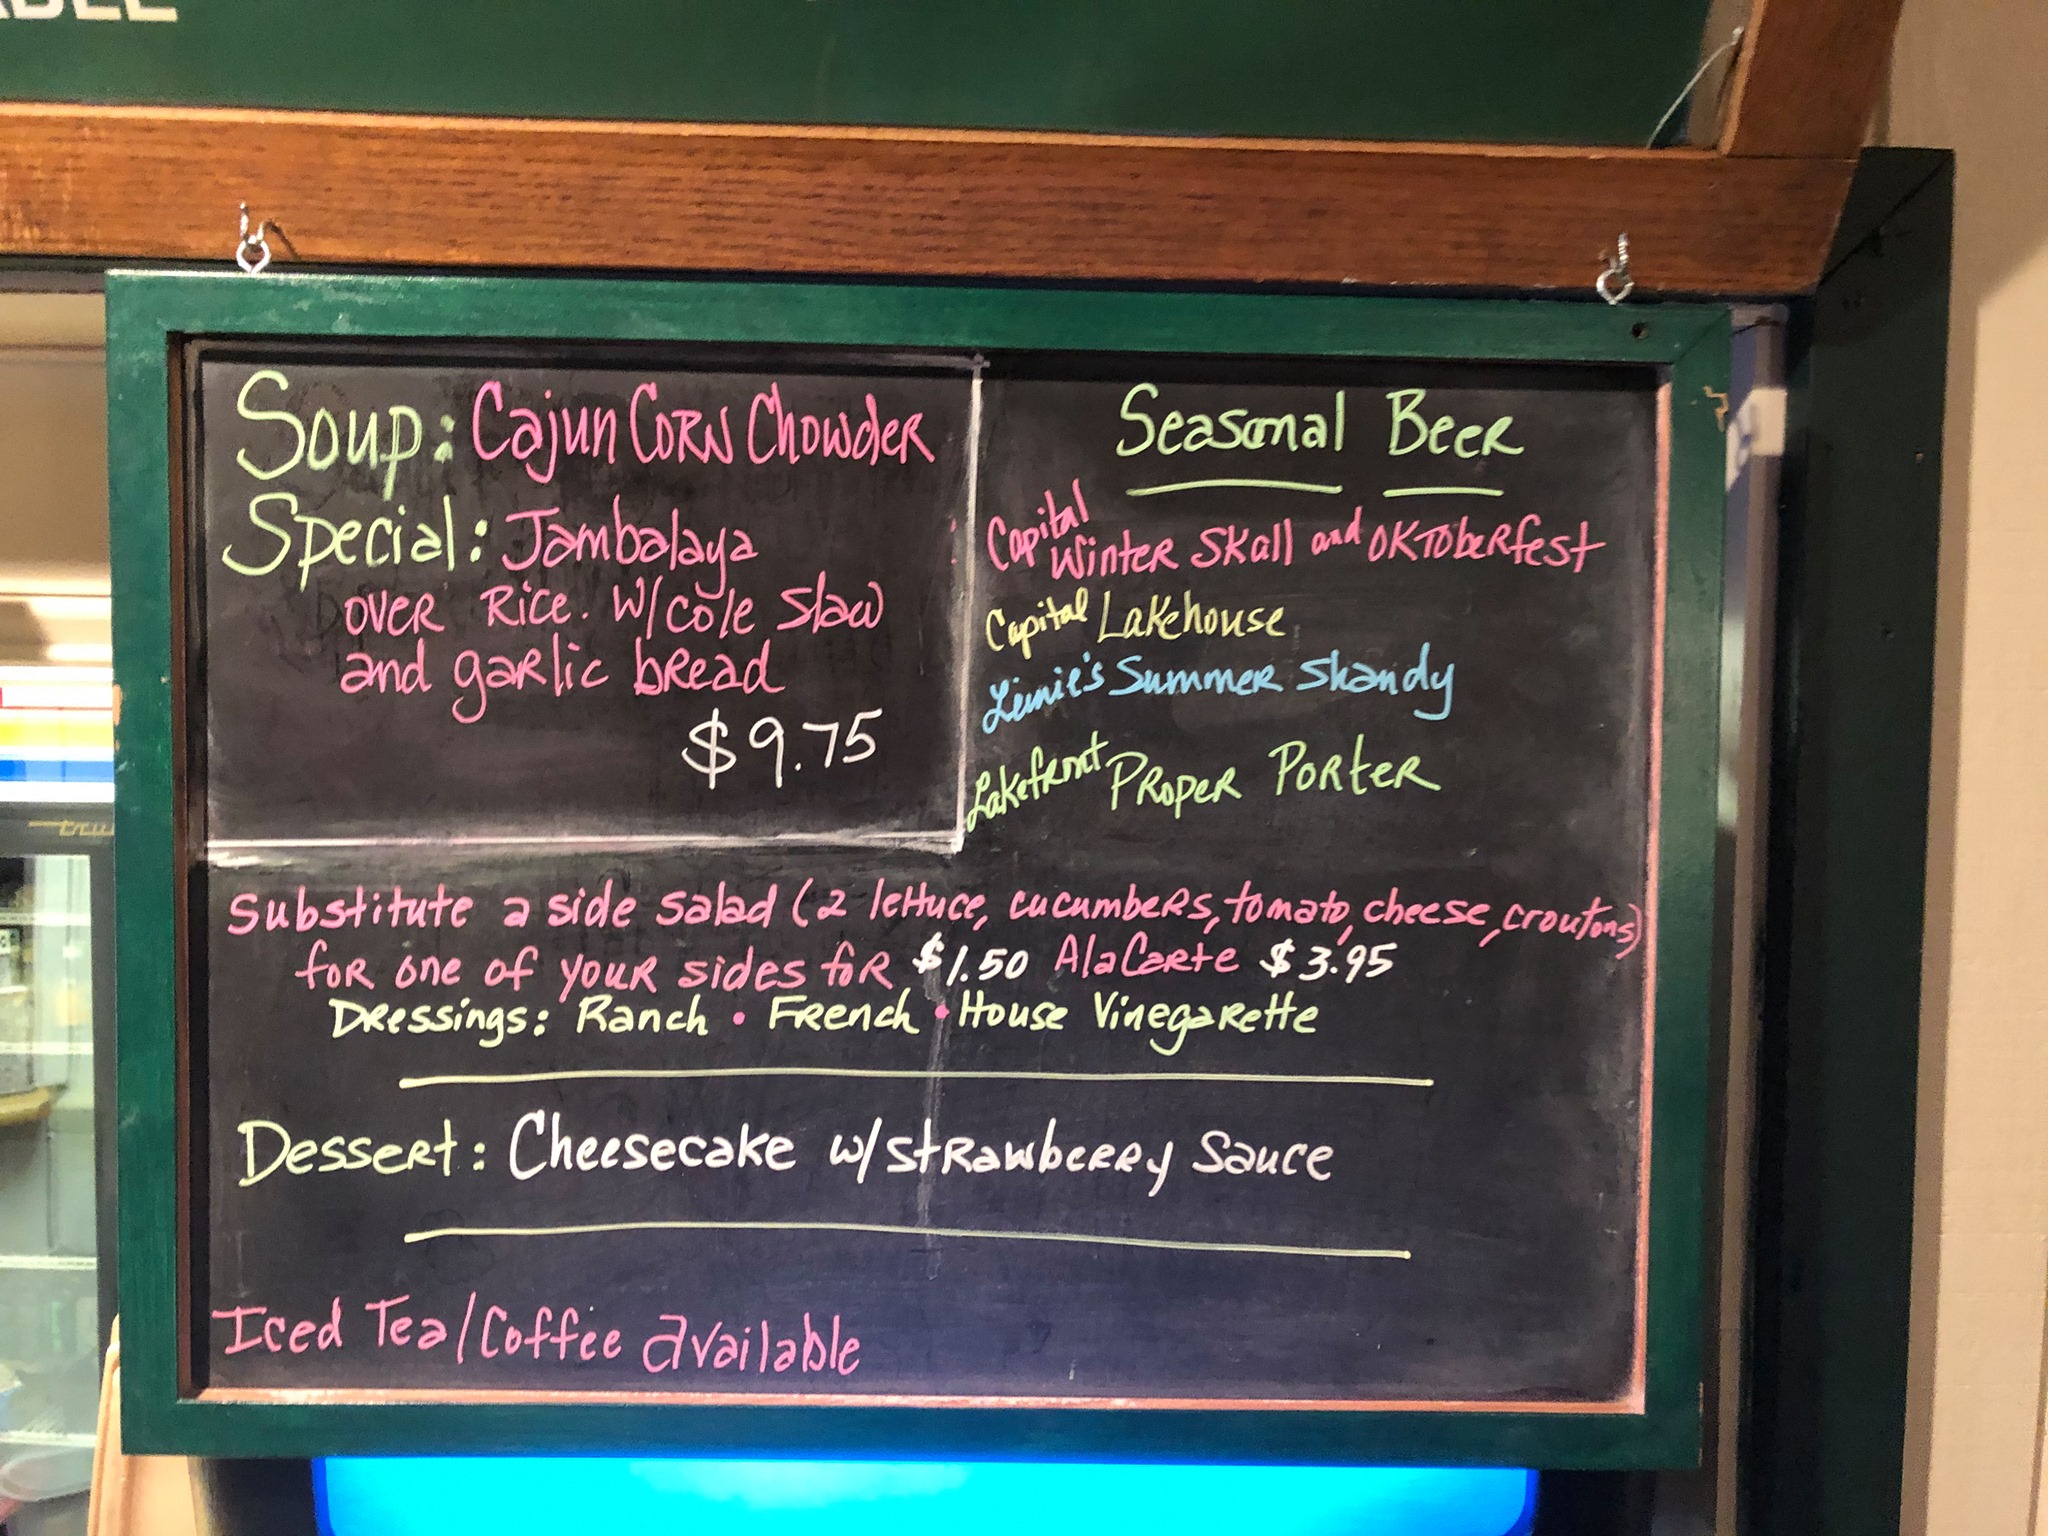 Soup: Cajun Corn Chowder
Special: Jambalaya
over Rice. w/cole slaw
and garlic bread
$9.75
Seasonal Beer
Capital Winter Skall and Oktoberfest
Capital Lakehouse
Leinie's Summer Shandy
Lakefront Proper Porter
Substitute a side salad (2 lettuce, cucumbers, tomato, cheese, croutons)
for one of your sides for $1.50 AlaCarte $3.95
Dressings: Ranch • French • House Vinegarette
Dessert: Cheesecake w/strawberry sauce
Iced Tea/Coffee available